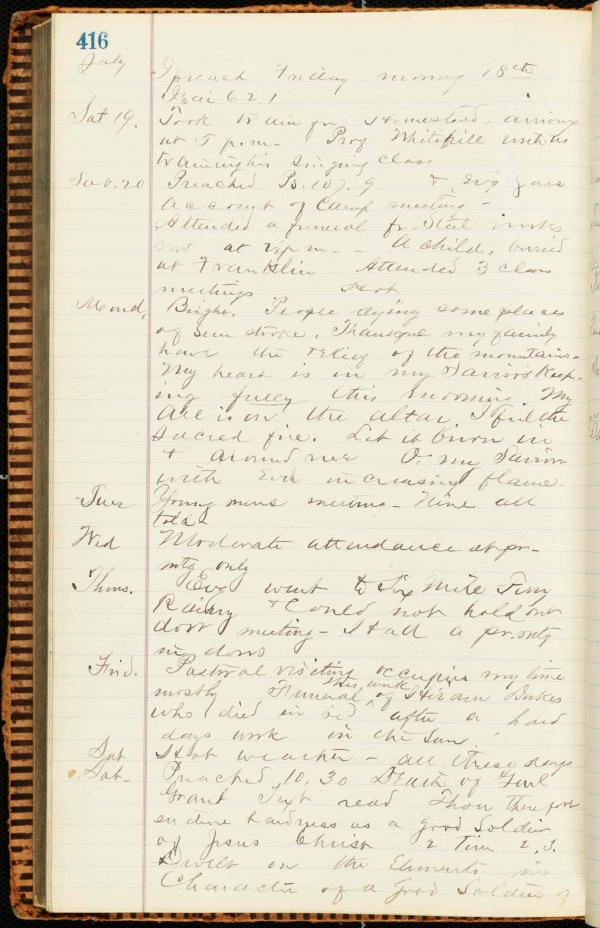 416
July I preach Friday morning 18th
Isai 62.1
Sat 19. Took train for Homestead. arriving
at 5 p.m. Prof Whitehill with us
training his singing class
Sab. 20 Preached Ps. 107. 9 & Ev'g gave
account of Camp meeting -
Attended a funeral fr. Steel works
at 2 p.m. - A child, buried
at Franklin Attended 3 class
meetings Hot
Mond, Bright. People dying some places
of Sun stroke. Thankful my family
have the relief of the mountains -
My heart is in my Saviors keep-
ing fully this morning. My
All is on the altar. I feel the
sacred fire. Let it burn in
& around me O, my Savior
with Ever increasing flame.
Tues Young mens meeting - Nine all
told
Wed Moderate attendance at pr-
mtg only
Thurs. Eve went to Six Mile Ferry
Rainy & Could not hold out
door meeting - Had a pr. mtg
in doors
Frid. Pastoral visiting occupies my time
mostly this week Funeral of Hiram Dukes
who died in bed after a hard
days work in the Sun.
Sat Hot weather - all these days
Sab - Preached 10,30 Death of Genl
Grant Text read Thou therefore
endure hardness as a good Soldier
of Jesus Christ 2 Tim 2,3.
Dwelt on the Elements in
Character of a Good Soldier of